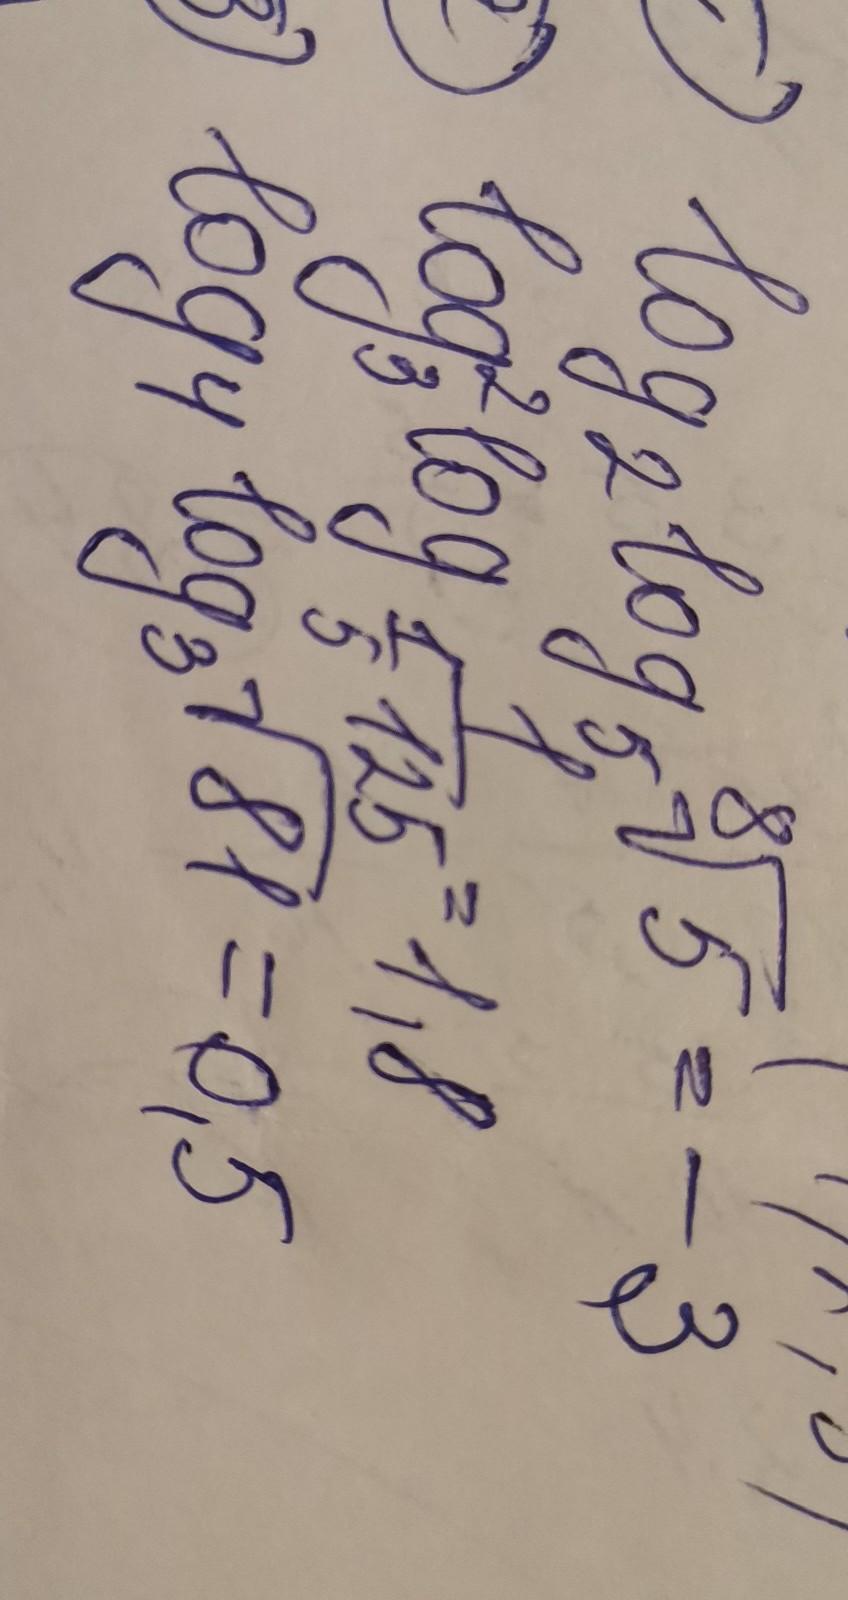 1) log₂ log₅ ⁸√5 = -3
2) log₃² log_{1/5} 1/125 = 1,8
3) log₄ log₃ √81 = 0,5